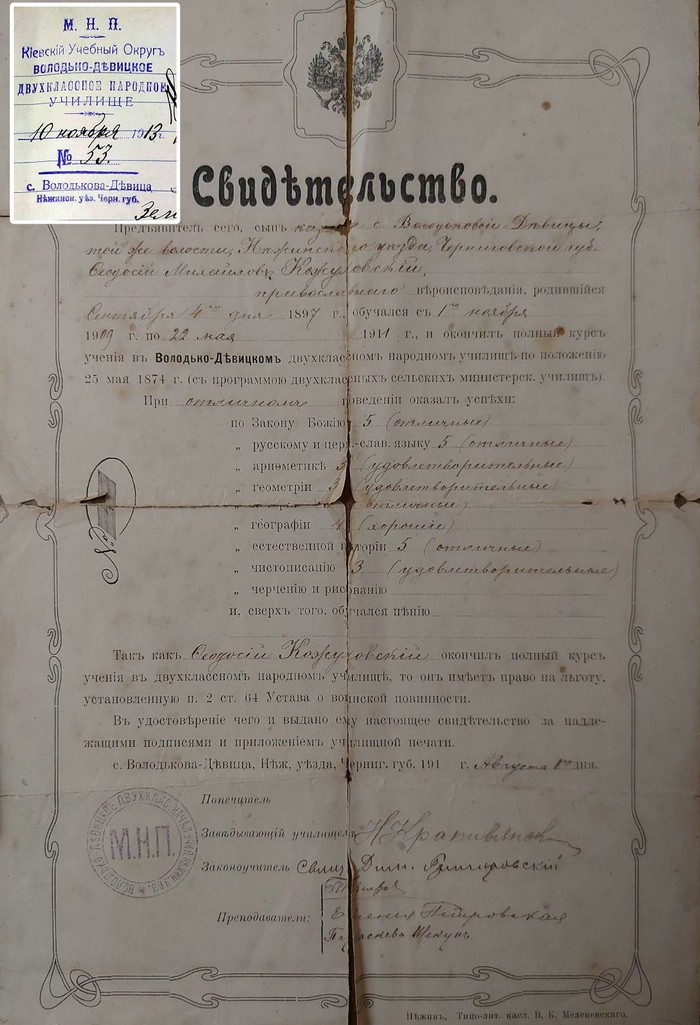 М. Н. П.
Кіевскій Учебный Округъ
ВОЛОДЬКО-ДѢВИЦКОЕ
ДВУХКЛАССНОЕ НАРОДНОЕ
УЧИЛИЩЕ
10 ноября 1913 г.
№ 53.
с. Володькова-Дѣвица
Нѣжинск. уѣз. Черн. губ.
Свидѣтельство.
Предъявитель сего, сынъ с. Володьковой Дѣвицы,
той же волости, Нѣжинскаго уѣзда, Черниговской губ.
Ѳеодосій Михайловъ Кожуховскій,
православнаго вѣроисповѣданія, родившійся
Сентября 4го дня 1897 г., обучался съ 1го ноября
1909 г. по 22 мая 1911 г., и окончилъ полный курсъ
ученія въ Володько-Дѣвицкомъ двухклассномъ народномъ училищѣ по положенію
25 мая 1874 г. (съ программою двухклассныхъ сельскихъ министерск. училищъ).
При отличномъ поведеніи оказалъ успѣхи:
по Закону Божію 5 (отличные)
„ русскому и церк.-слав. языку 5 (отличные)
„ ариѳметикѣ 3 (удовлетворительные)
„ геометріи 3 (удовлетворительные)
отличные)
„ географіи 4 (хорошіе)
„ естественной исторіи 5 (отличные)
„ чистописанію 3 (удовлетворительные)
„ черченію и рисованію
и, сверхъ того, обучался пѣнію
№
Такъ какъ Ѳеодосій Кожуховскій окончилъ полный курсъ
ученія въ двухклассномъ народномъ училищѣ, то онъ имѣетъ право на льготу,
установленную п. 2 ст. 64 Устава о воинской повинности.
Въ удостовѣреніе чего и выдано ему настоящее свидѣтельство за надле-
жащими подписями и приложеніемъ училищной печати.
с. Володькова-Дѣвица, Нѣж. уѣзда, Черниг. губ. 191 г. Августа 1го дня.
Попечитель
Завѣдывающій училищемъ
Законоучитель Свящ. Дим.
Преподаватели: Евгенія Петровская
Параскева
М.Н.П.
Нѣжинъ, Типо-лит. насл. В. К. Меленевскаго.